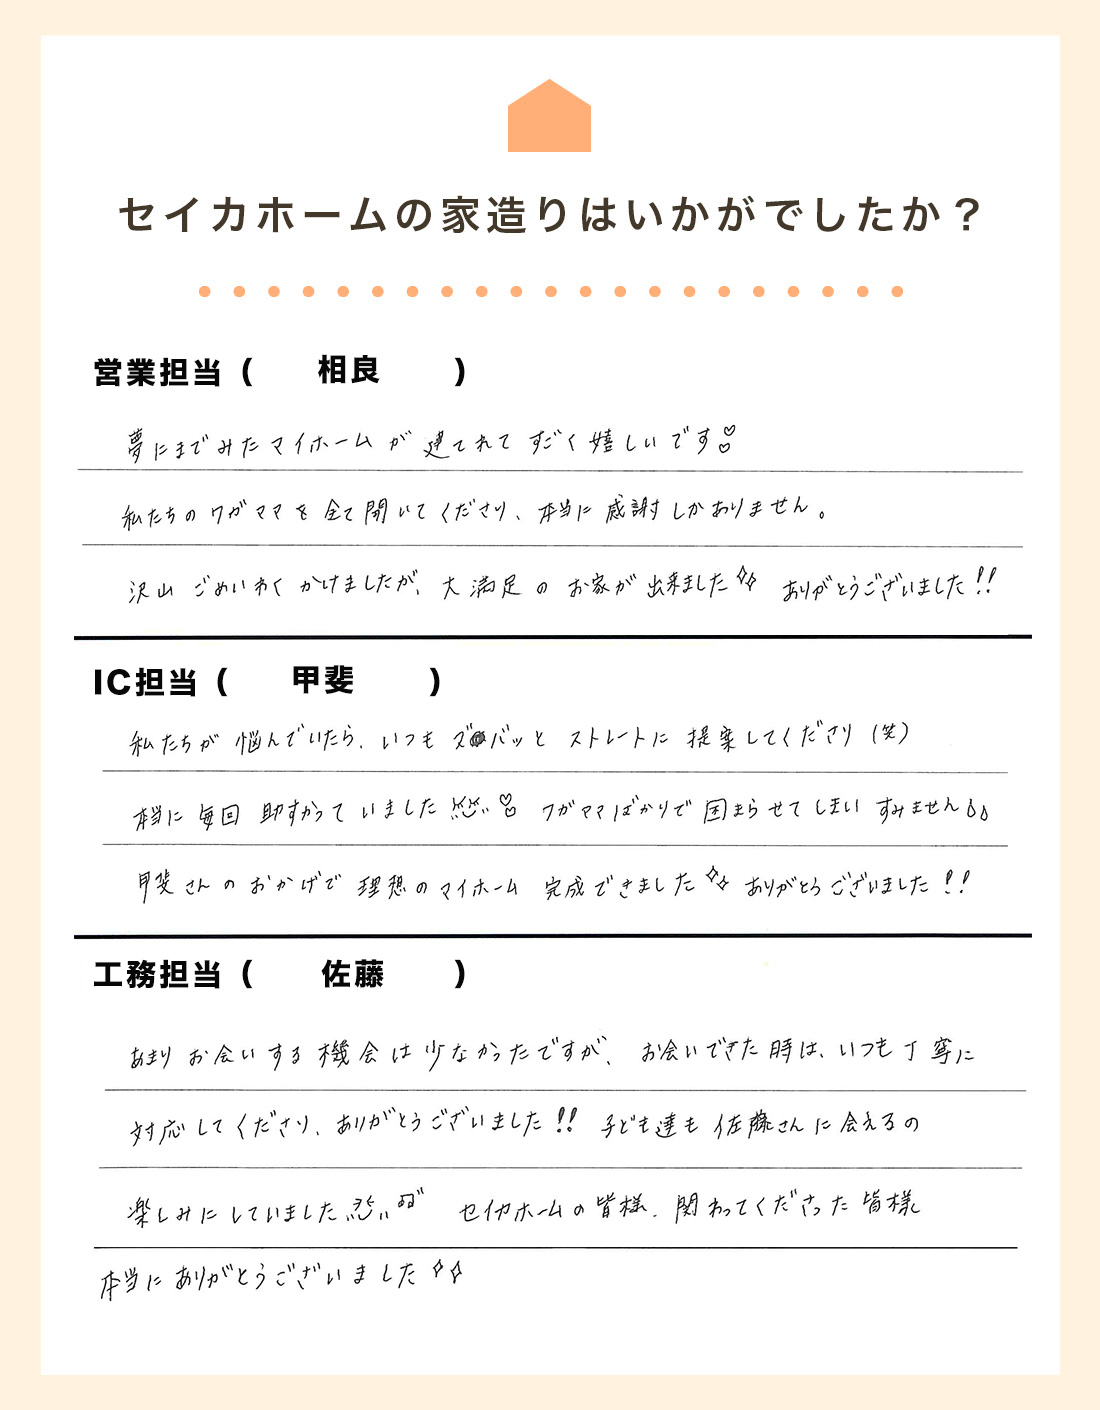 セイカホームの家造りはいかがでしたか？
営業担当（　相良　）
夢にまでみたマイホームが建てれてすごく嬉しいです♡
私たちのワガママを全て聞いてくださり、本当に感謝しかありません。
沢山ごめいわくかけましたが、大満足のお家が出来ました✧ ありがとうございました!!
IC担当（　甲斐　）
私たちが悩んでいたら、いつもズバッとストレートに提案してくださり（笑）
本当に毎回助すかっていました♡ ワガママばかりで困まらせてしまいすみません
甲斐さんのおかげで理想のマイホーム完成できました✧ ありがとうございました!!
工務担当（　佐藤　）
あまりお会いする機会は少なかったですが、お会いできた時は、いつも丁寧に
対応してくださり、ありがとうございました!! 子ども達も佐藤さんに会えるの
楽しみにしていました♫ セイカホームの皆様、関わってくださった皆様
本当にありがとうございました✧✧